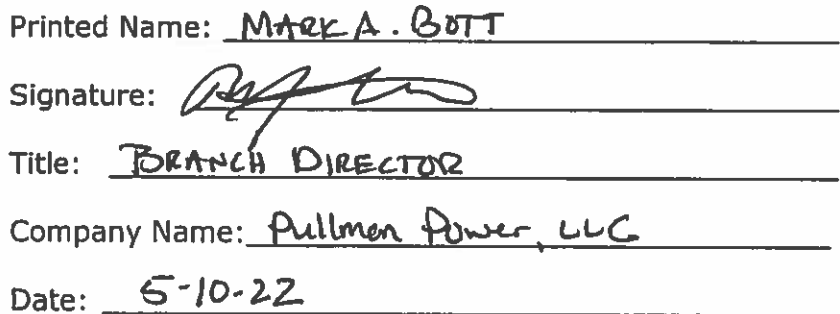 Printed Name: MARK A. BOTT
Signature:
Title: BRANCH DIRECTOR
Company Name: Pullman Power, LLC
Date: 5-10-22